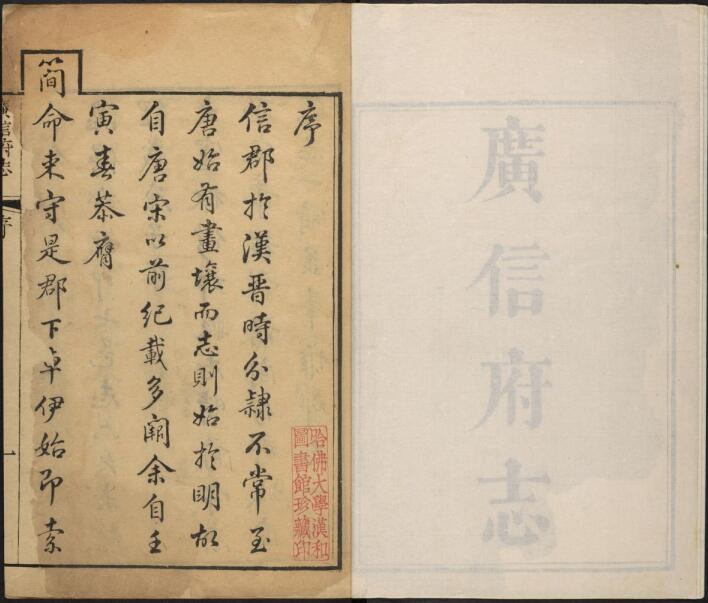 廣信府志
序
信郡扵漢晋時分隷不常至
唐始有畫壤而志則始扵明故
自唐宋以前紀載多闕余自壬
寅春恭膺
簡命来守是郡下車伊始即索
廣信府志
序
一
哈佛大學漢和
圖書館珍藏印